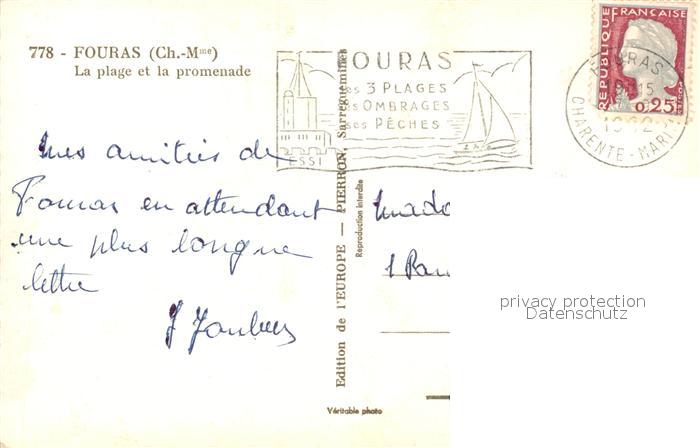 778 - FOURAS (Ch.-Mme)
La plage et la promenade
FOURAS
Ses 3 PLAGES
Ses OMBRAGES
Ses PÊCHES
REPUBLIQUE FRANÇAISE
0,25
FOURAS
15
1962
CHARENTE-MARIT
mes amitiés de
Fouras en attendant
une plus longue
lettre
J
Mada
1 Ra
Edition de l'EUROPE — PIERRON, Sarreguemines
Reproduction interdite
Véritable photo
privacy protection
Datenschutz